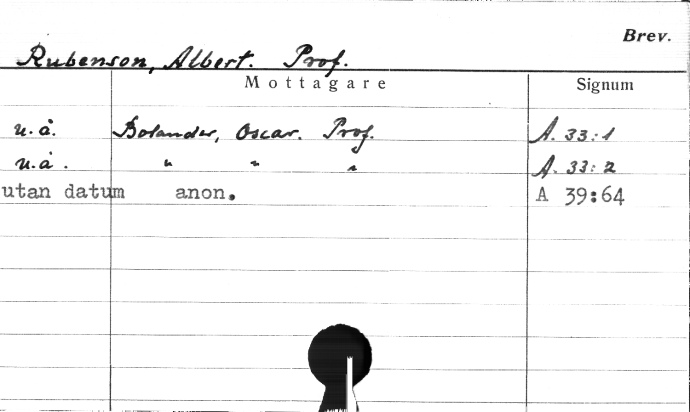 Brev.
Rubenson, Albert. Prof.
Mottagare Signum
u.å. Bolander, Oscar. Prof. A. 33:1
u.å. " " " A. 33:2
utan datum anon. A 39:64